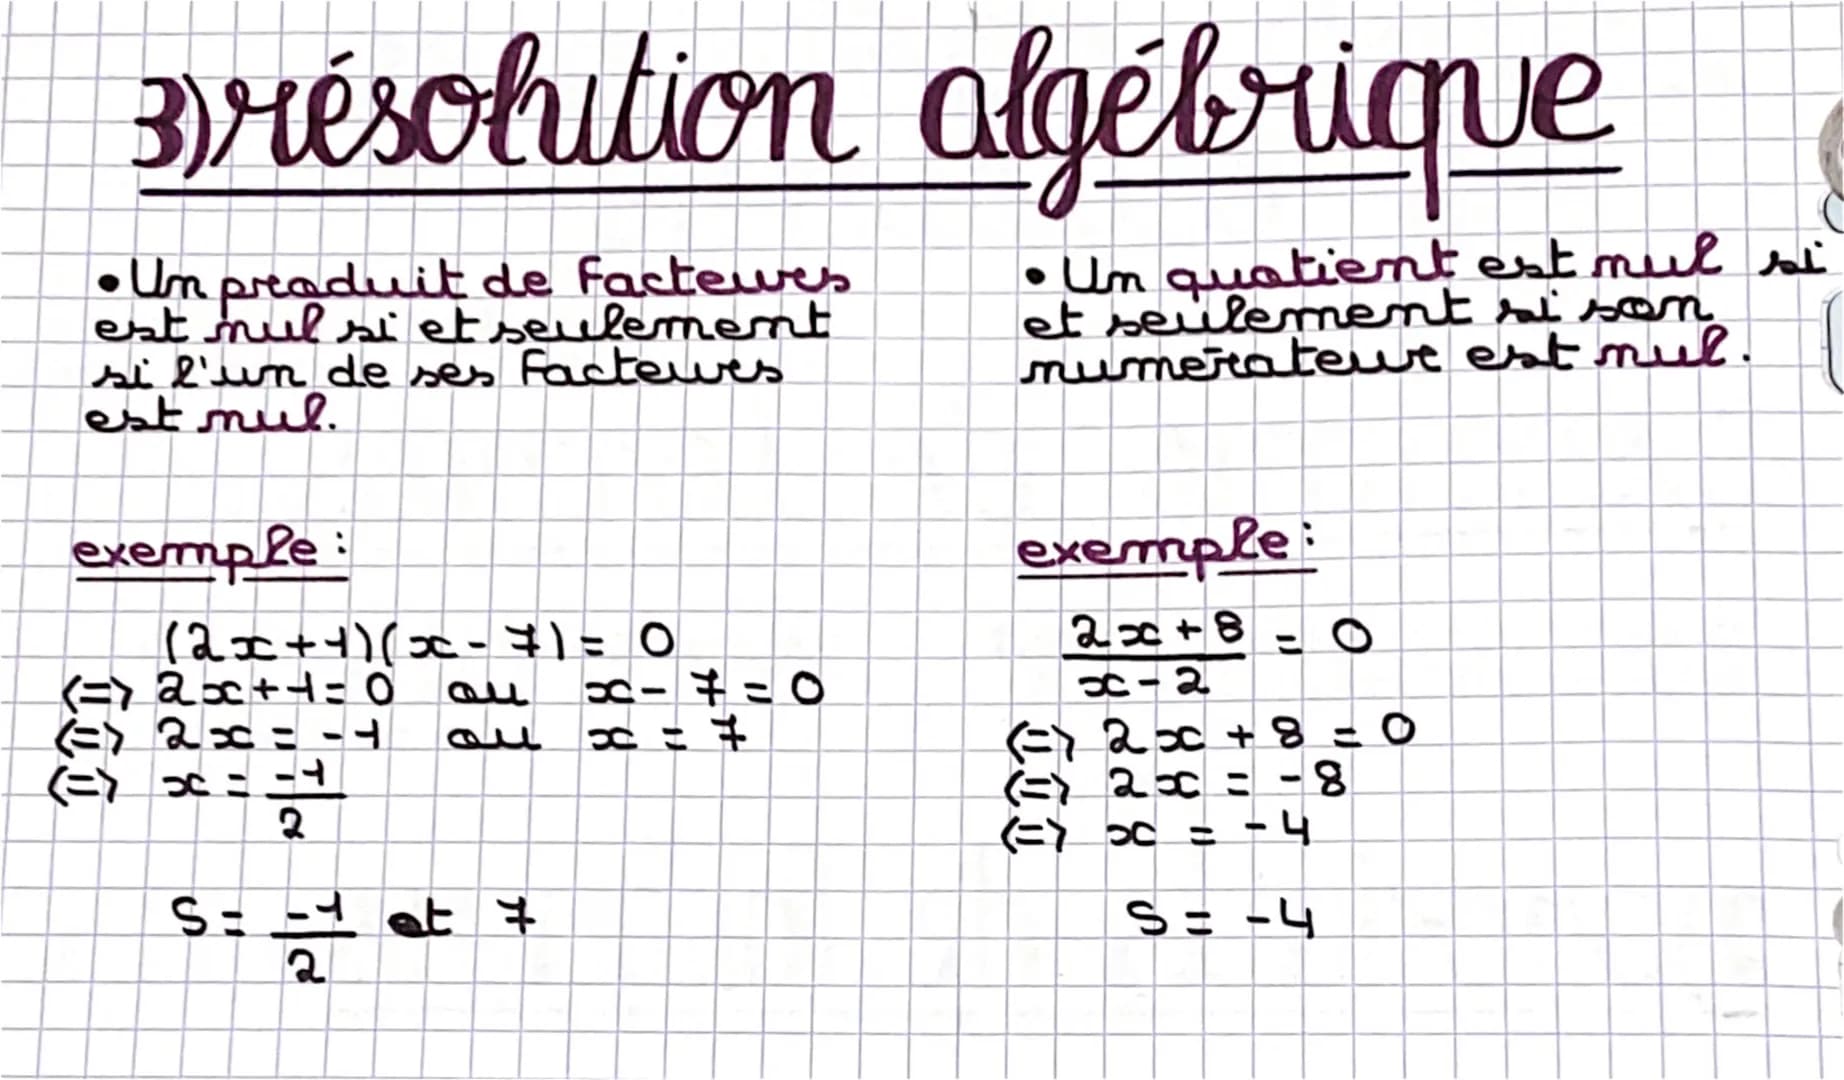 3) résolution algébrique
• Un produit de facteurs
est nul si et seulement
si l'un de ses facteurs
est nul.
exemple :
(2x+1)(x-7) = 0
<=> 2x+1=0 ou x-7=0
<=> 2x = -1 ou x = 7
<=> x = -1/2
S = -1/2 et 7
• Un quotient est nul si
et seulement si son
numérateur est nul.
exemple :
2x+8/x-2 = 0
<=> 2x + 8 = 0
<=> 2x = -8
<=> x = -4
S = -4